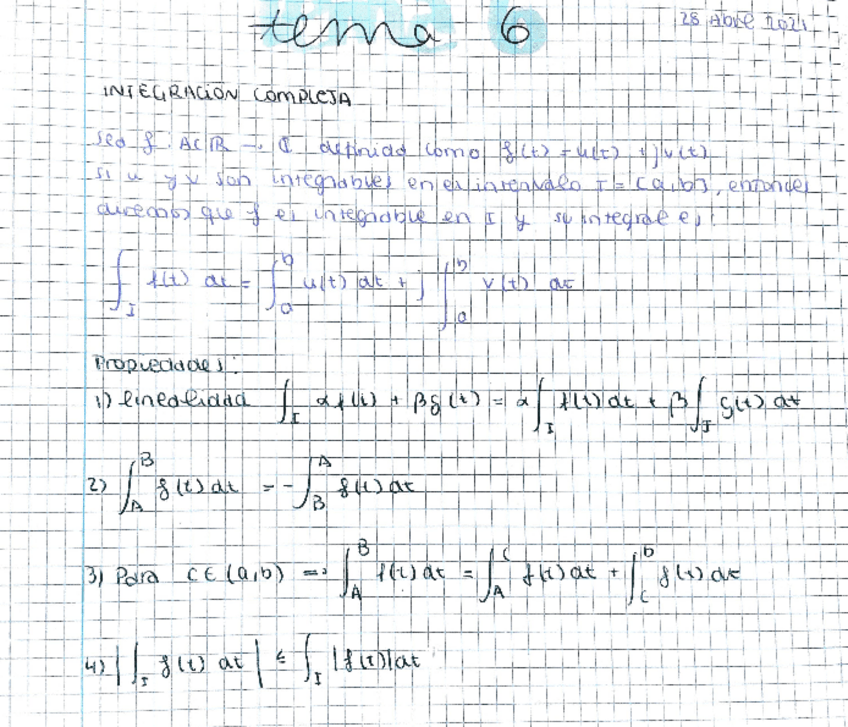 tema 6
28 Abril 2021
INTEGRACIÓN COMPLEJA
Sea f: A⊂ℝ → ℂ definida como f(t) = u(t) + jv(t)
si u y v son integrables en el intervalo I = [a,b], entonces
diremos que f es integrable en I y su integral es:
∫_I f(t) dt = ∫_a^b u(t) dt + j ∫_a^b v(t) dt
Propiedades:
1) linealidad ∫_I αf(t) + βg(t) = α∫_I f(t) dt + β∫_I g(t) dt
2) ∫_A^B f(t) dt = -∫_B^A f(t) dt
3) Para c∈(a,b) => ∫_A^B f(t) dt = ∫_A^C f(t) dt + ∫_C^b f(t) dt
4) |∫_I f(t) dt| ≤ ∫_I |f(t)| dt